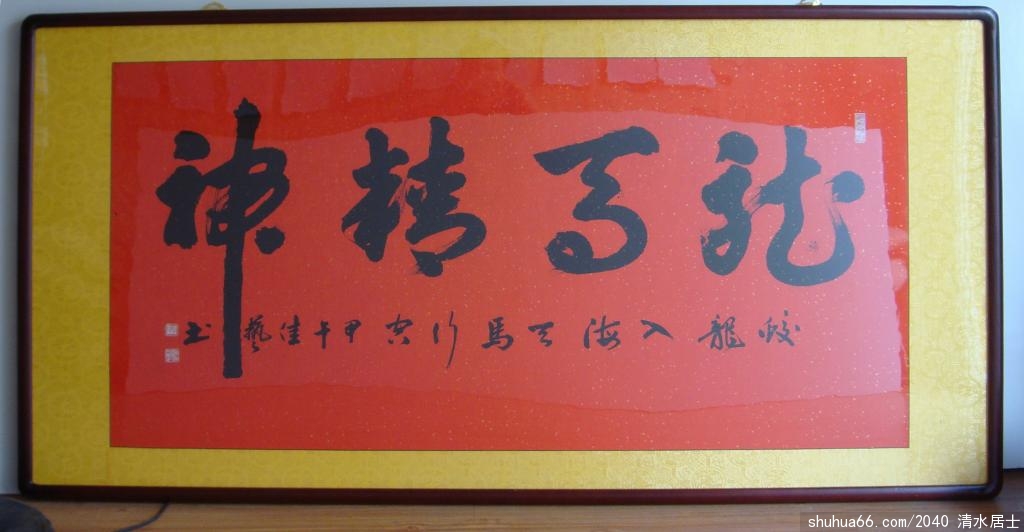 龙马精神
蛟龍入海天馬行空甲午佳藝書
shuhua66.com/2040 清水居士